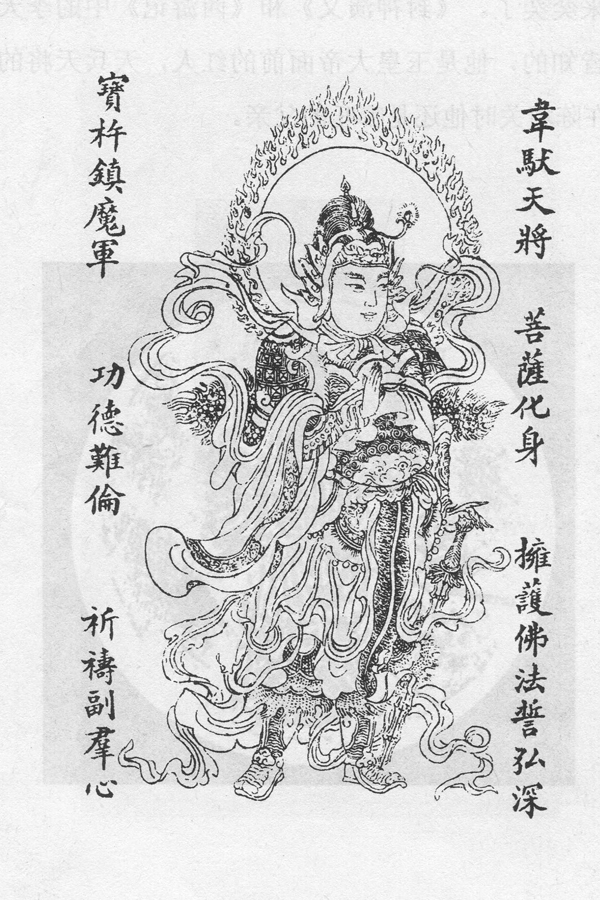 韋馱天將 菩薩化身 擁護佛法誓弘深
寶杵鎮魔軍 功德難倫 祈禱副羣心